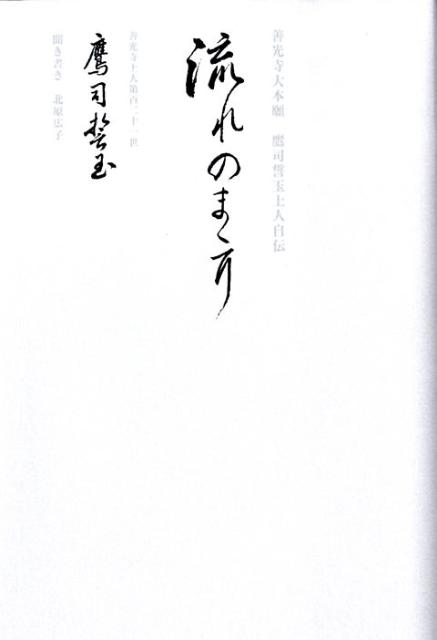 善光寺大本願 鷹司誓玉上人自伝
流れのまゝに
善光寺上人第百二十一世
鷹司誓玉
聞き書き 北原広子